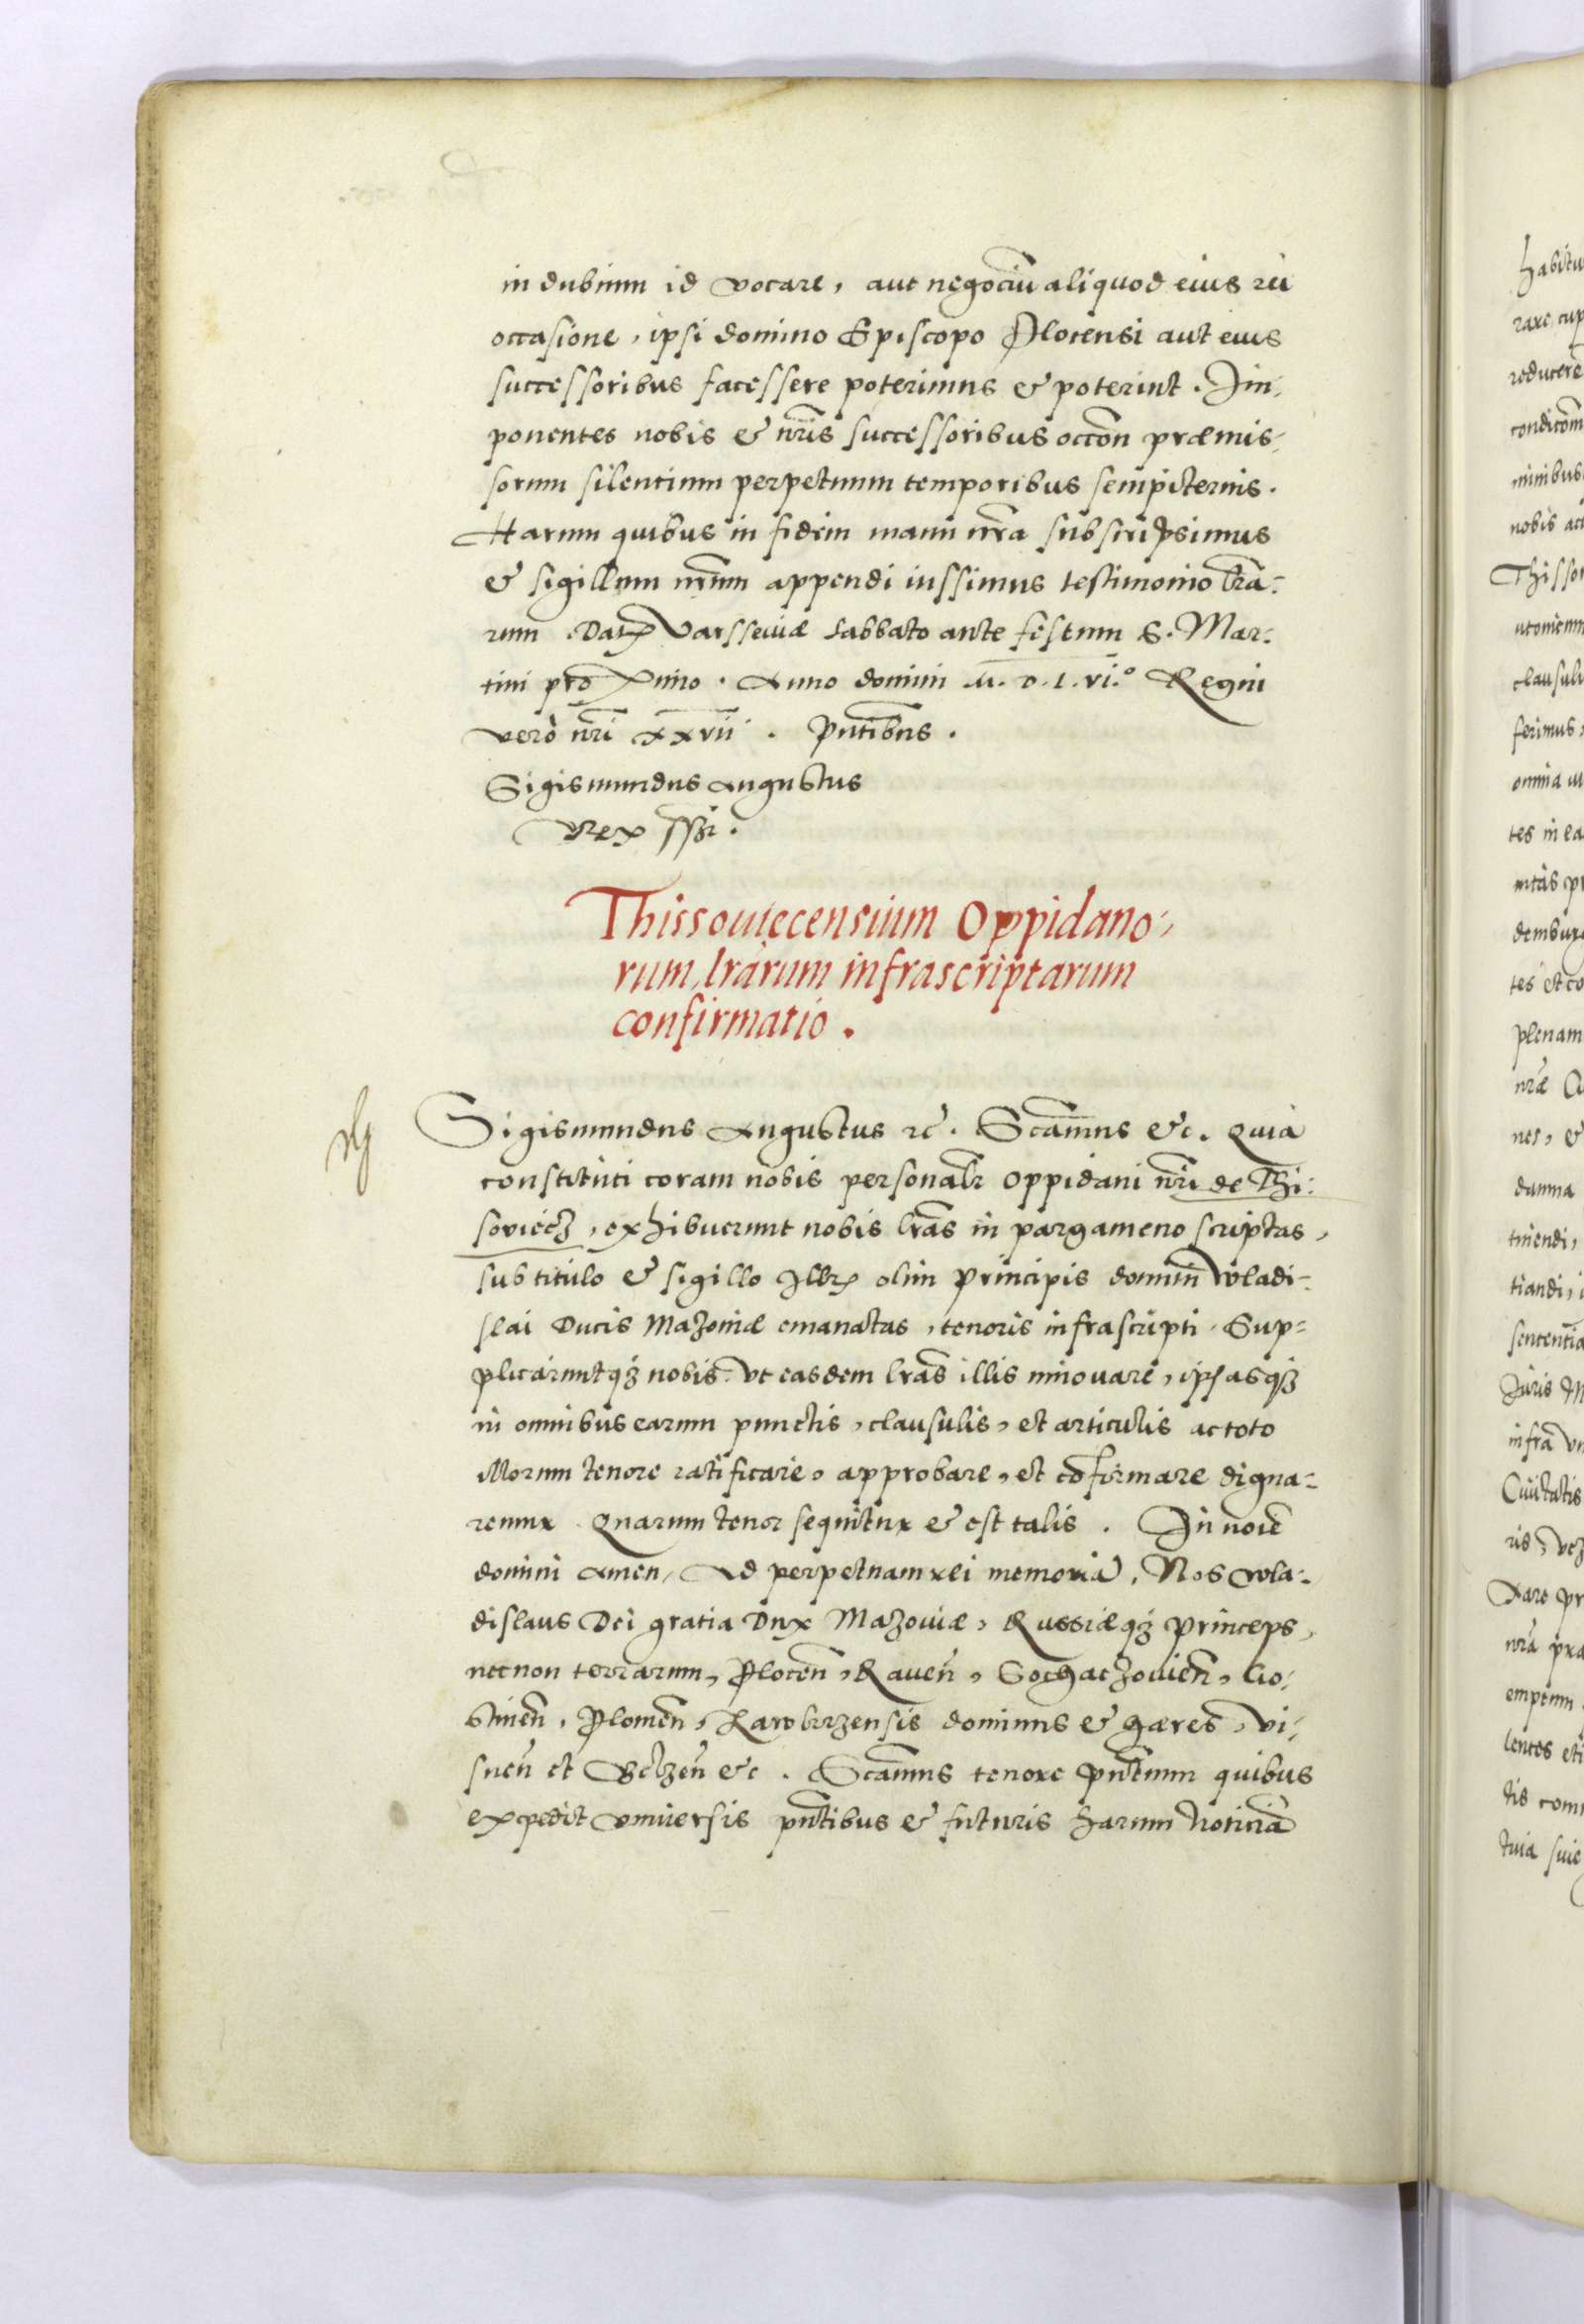 in dubium id vocare, aut negociũ aliquod eius rei
occasione, ipsi domino Episcopo Plocensi aut eius
successoribus facessere poterimus & poterint. Im-
ponentes nobis & nr̃is successoribus occõn præmis-
sorum silentium perpetuum temporibus sempiternis.
Harum quibus in fidem manu nr̃a subscripsimus
& sigillum nr̃um appendi iussimus testimonio lr̃a-
rum. Dat Varsseviæ Sabbato ante festum S. Mar-
tini proximo. Anno domini M.D.L.vi.º Regni
verò nr̃i xxvii. Pñtibus.
Sigismundus Augustus
Rex sszt.
Thissouiecensium Oppidano-
rum, lrarum infrascriptarum
confirmatio.
Sigismundus Augustus ec. Scimus &c. Quia
constituti coram nobis personalr Oppidani nr̃i de Thi-
soviecz, exhibuerunt nobis lr̃as in pargameno scriptas,
sub titulo & sigillo Illr̃ olim Principis domini Wladi-
slai Ducis Mazoviæ emanatas, tenoris infrascripti. Sup-
plicaruntq3 nobis vt easdem lr̃as illis innovare, ipsasq3
in omnibus earum punctis, clausulis, et articulis ac toto
illorum tenore ratificare, approbare, et cõfirmare digna-
remur. Quarum tenor sequitur & est talis. In noĩe
domini Amen, Ad perpetuam rei memoriã. Nos Wla-
dislaus Dei gratia Dux Mazoviæ, Russiæq3 Princeps,
necnon terrarum, Plocen̄, Raven̄, Sochaczovien̄, Go-
stinen̄, Plonen̄, dominus & hæres, Vi-
snen̄ et Belzen̄ &c. Scimus tenore pñtium quibus
expedit vniversis pñtibus & futuris harum noticiã